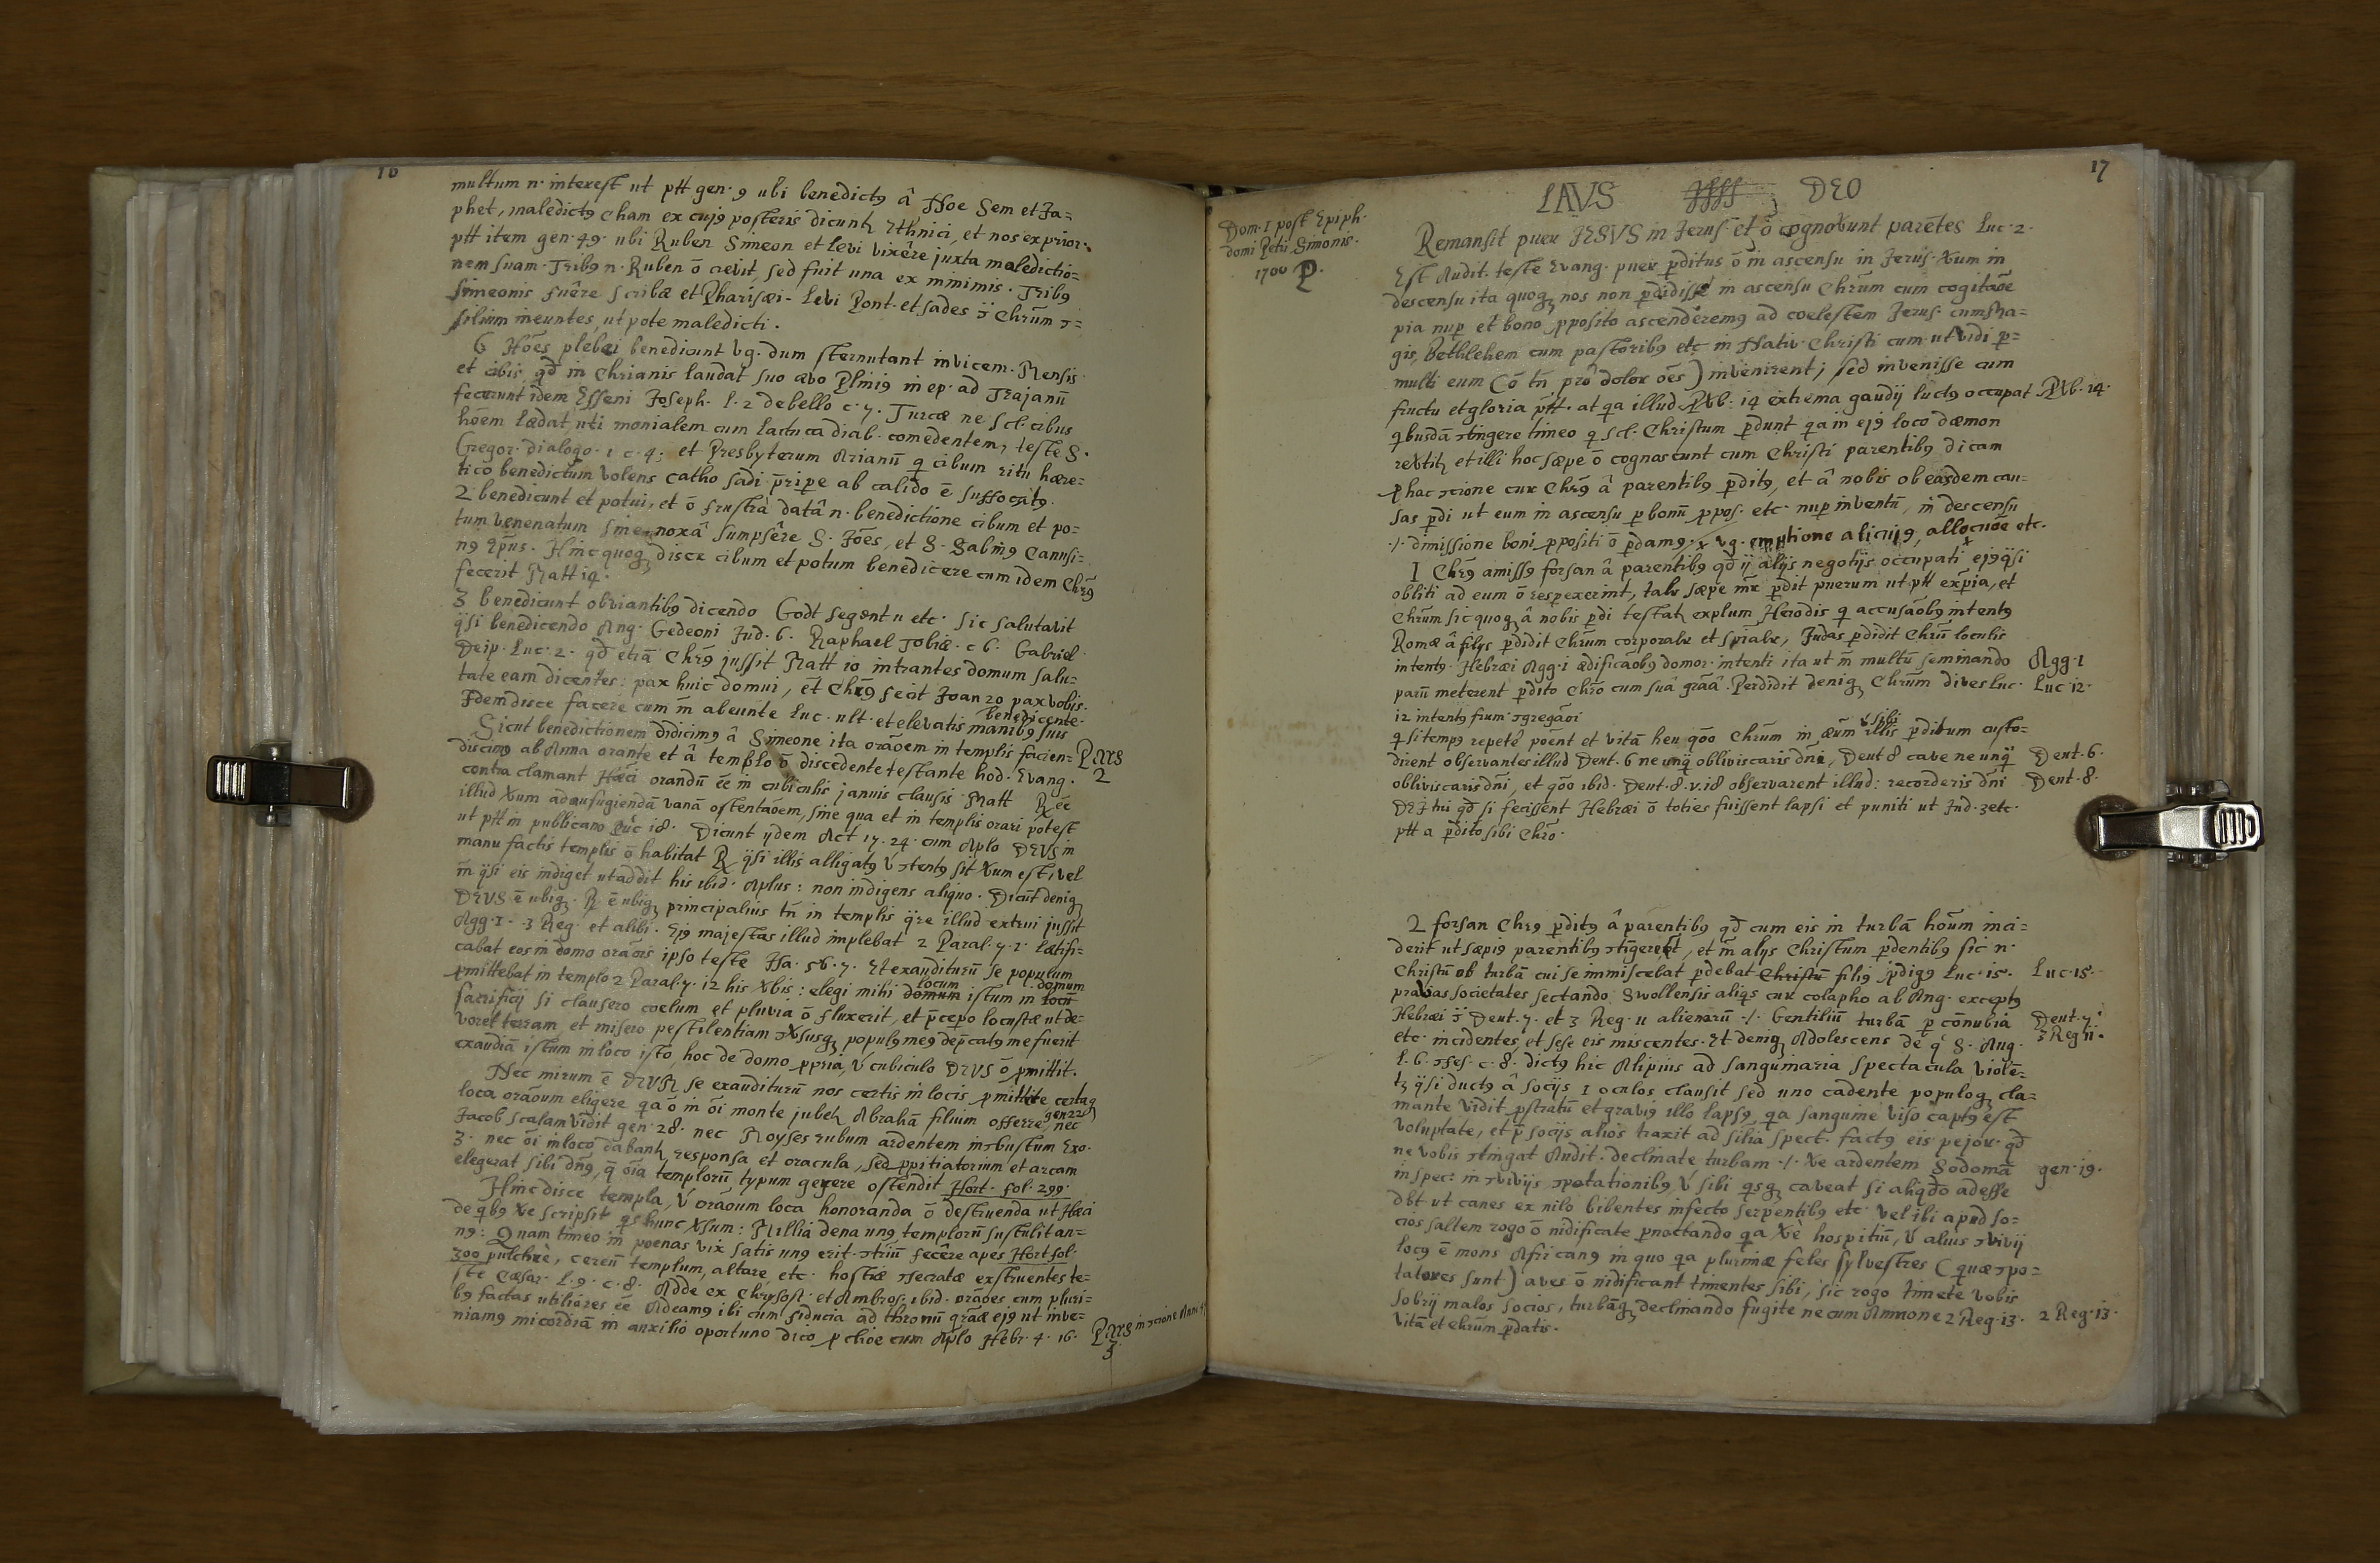 16
multum n. interest ut ptt gen. 9 ubi benedictꝰ â Noe Sem et Ja=
phet, maledictꝰ Cham ex cujꝰ posteris dicuntꝫ Ethnici, et nos ex prior.
ptt item gen. 49. ubi Ruben Simeon et Levi vixêre juxta maledictio=
nem suam. Tribꝰ n. Ruben ō crevit, sed fuit una ex minimis. Tribꝰ
Simeonis fuêre scribæ et Pharisæi. Levi Pont. et sades ɔ̄ Chrūm ɔ=
silium ineuntes, ut pote maledicti.
6 Hōes plebei benedicunt vg. dum sternutant invicem. Mensis
et cibis, qd̄ in Chrianis laudat suo ævo Pliniꝰ in ep. ad Trajanū
fecerunt idem Esseni Joseph. l. 2 de bello c. 7. Turcæ ne scl. cibus
hōem lædat, uti monialem cum lactuca diab. comedentem, teste S.
Gregor. dialogo. 1 c. 4; et Presbyterum Arianū q cibum ritu hære=
tico benedictum volens catho sadi p̄ripe ab calido ē suffocatꝰ.
2 benedicunt et potui, et ō frustrà datâ n. benedictione cibum et po=
tum venenatum sine noxâ sumpsêre S. Jōes, et S. Sabinꝰ Canusi=
nꝰ Ep̄us. Hinc quoqꝫ disce cibum et potum benedicere cum idem Chrꝰ
fecerit Matt 14.
3 benedicunt obviantibꝰ dicendo Godt segent u etc. sic salutavit
q̈si benedicendo Ang. Gedeoni Jud. 6. Raphael Tobiæ. c 6. Gabriel
Deip. Luc. 2. qd̄ etiā Chrꝰ jussit Matt 10 intrantes domum salu=
tate eam dicentes: pax huic domui, et Chrꝰ fecit Joan 20 pax vobis.
Idem disce facere cum in abeunte Luc. ult. et elevatis manibꝰ suis
benedicente.
Sicut benedictionem didicimꝰ â Simeone ita orāoem in templis facien=
discimꝰ ab Anna orante et â templo ō discedente testante hod. Evang.
Pars
2
contra clamant Hæci orandū eē in cubiculis januis clausis Matt ℞ eē
illud Xum ad aufugiendā vanā ostentāoem, sine qua et in templis orari potest
ut ptt in publicano Luc 18. Dicunt ijdem Act 17. 24. cum Aplo DEUS in
manu factis templis ō habitat ℞ q̈si illis alligatꝰ v̄ ɔtentꝰ sit Xum est, vel
m̄ q̈si eis indiget ut addit his ibid. Aplus: non indigens aliquo. Dicūt deniqꝫ
DEUS ē ubiqꝫ. ℞ ē ubiqꝫ principalius tn̄ in templis q̈re illud extrui jussit
Agg. 1. 3 Reg. et alibi. Ejꝰ majestas illud implebat 2 Paral. 7. 1. lætifi=
cabat eos in domo orāois ipso teste Isa. 56. 7. Et exauditurū se populum
pmittebat in templo 2 Paral. 7. 12 his Xbis: elegi mihi domum istum in locū
locum
domum
sacrificij si clausero coelum et pluvia ō fluxerit, et p̄cepo locustæ ut de=
voret terram, et misero pestilentiam ɔXsusqꝫ populꝰ meꝰ dep̄catꝰ me fuerit
exaudiā istum in loco isto, hoc de domo ppria, v̄ cubiculo DEUS ō pmittit.
Nec mirum ē DEUM se exauditurū nos certis in locis pmittite certaq
loca orāoum eligere qa ō in ōi monte jubetꝫ Abrahā filium offerre, nec
gen 22
Jacob scalam vidit gen. 28. nec Moyses rubum ardentem inɔbustum Exo.
3. nec ōi in loco dabantꝫ responsa et oracula, sed ppitiatorium et arcam
elegerat sibi dn̄ꝰ, q̄ ōia templorū typum gerere ostendit Hort. fol. 299.
Hinc disce templa, v̄ orāoum loca honoranda ō destruenda ut Hæci
de qbꝰ Xe scripsit qs hunc Xsum: Millia dena unꝰ templorū sustulit an=
nꝰ: Quam timeo m̄ poenas vix satis unꝰ erit. ɔtriū fecêre apes Hort fol.
300 pulchrè, cereū templum, altare, etc. hostiæ ɔsecratæ exstruentes te=
ste Cæsar. l. 9. c. 8. Adde ex Chrysost. et Ambros. ibid. orāoes cum pluri=
bꝰ factas utiliores eē Adeamꝰ ibi cum fiducia ad thronū grāæ ejꝰ ut inve=
niamꝰ micordiā in auxilio oportuno dico p clioē cum Aplo Hebr. 4. 16.
Pars in ɔcione
3
17
Dom. 1 post Epiph.
domi Petri Simonis.
1700 P.
LAUS DEO
Remansit puer JESUS in Jerus. et ō cognoXunt parētes Luc. 2.
Est Audit. teste Evang. puer pditus ō in ascensu in Jerus. Xum in
descensu ita quoqꝫ nos non pdidisse in ascensu Chrūm cum cogitāōe
pia nup et bono pposito ascenderemꝰ ad coelestem Jerus. cum Ma=
gis, Bethlehem cum pastoribꝰ etc in Nativ. Christi cum ut vidi p=
multi eum (ō tn̄ prô dolor ōes) invenirent; sed invenisse cum
fructu et gloria p̄tt. at qa illud PXb: 14 extrema gaudij luctꝰ occupat
PXb. 14.
qbusdā ɔtingere timeo q scl. Christum pdunt qa in ejꝰ loco dæmon
reXtitꝫ et illi hoc sæpe ō cognoscunt cum Christi parentibꝰ dicam
p hac ɔcione cur Chrꝰ â parentibꝰ pditꝰ, et â nobis ob easdem cau=
sas pdi ut eum in ascensu p bonū ppos. etc. nup inventū, in descensu
.1. dimissione boni ppositi ō pdamꝰ. vg. emptione alicujꝰ, allocuōe etc.
1 Chrꝰ amissꝰ forsan â parentibꝰ qd̄ ij alijs negotijs occupati ejꝰ q̈si
obliti ad eum ō respexerint, talr sæpe mr̄ pdit puerum ut ptt exp̄ia, et
Chrūm sic quoqꝫ â nobis pdi testatꝫ explum Herodis q accusāobꝰ intentꝰ
Romæ â filijs pdidit Chrūm corporalr et spialr, Judas pdidit Chrū loculis
intentꝰ. Hebræi Agg. 1 ædificāobꝰ domor. intenti ita ut m̄ multū seminando
Agg. 1
parū meterent pdito Chro cum suâ grāâ. Perdidit deniqꝫ Chrūm dives Luc.
Luc 12.
12 intentꝰ frum. ɔgregāoi
q si tempꝰ repetê poēnt et vitā heu qōo Chrūm in æūm illis pditum custo=
v̄ sibi
dirent observantes illud Deut. 6 ne unq̄ obliviscaris dn̄i, Deut 8 cave ne unq̄
Deut. 6.
obliviscaris dn̄i, et qōo ibid. Deut. 8. v. 18 observarent illud: recorderis dn̄i
Deut. 8.
DEI tui qd̄ si fecissent Hebræi ō toties fuissent lapsi et puniti ut Jud. 3 etc.
ptt a pdito sibi Chro.
2 forsan Chrꝰ pditꝰ â parentibꝰ qd̄ cum eis in turbā hoūm inci=
derit ut sæpiꝰ parentibꝰ ɔtigerit, et m̄ alijs Christum pdentibꝰ sic n.
Christū ob turbā cui se immiscebat pdebat Christū filiꝰ pdigꝰ Luc. 15.
Luc. 15.
pravas societates sectando. Swollensis aliqs cur colapho ab Ang. exceptꝰ
Hebræi ɔ̄ Deut. 7. et 3 Reg. 11 alienarū .1. Gentiliū turbā p cōnubia
Deut. 7.
3 Reg 11.
etc. incidentes, et sese eis miscentes. Et deniqꝫ Adolescens de q S. Aug.
l. 6. ɔfes. c. 8. dictꝰ hic Alipius ad sanguinaria spectacula violē=
tꝫ q̈si ductꝰ â socijs 1 oculos clausit sed uno cadente populoqꝫ cla=
mante vidit pstratū et graviꝰ illo lapsꝰ, qa sanguine viso captꝰ est
voluptate, et p̄ socijs alios traxit ad silia spect. factꝰ eis pejor. qd̄
ne vobis ɔtingat Audit. declinate turbam .1. Xe ardentem Sodomā
gen. 19.
in spec: in ɔvivijs ɔpotationibꝰ v̄ sibi qsqꝫ caveat si aliqd̄o adesse
dbt ut canes ex nilo bibentes infecto serpentibꝰ etc. vel ibi apud so=
cios saltem rogo ō nidificate pnoctando qa Xè hospitiū, v̄ alius ɔvivij
locꝰ ē mons Africanꝰ in quo qa plurimæ feles sylvestres (quæ ɔpo=
tatores sunt) aves ō nidificant timentes sibi, sic rogo timete vobis
sobrij malos socios, turbāqꝫ declinando fugite ne cum Amnone 2 Reg. 13.
2 Reg. 13.
vitā et Chrūm pdatis.